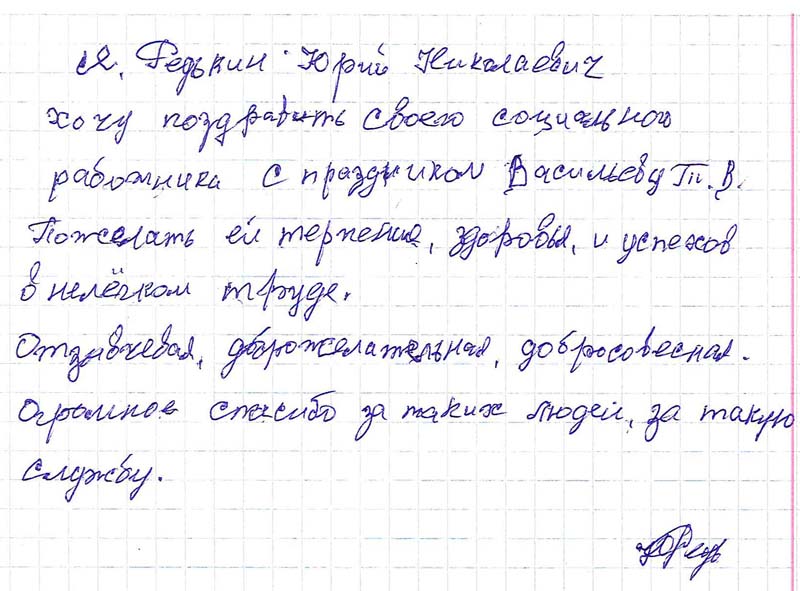 Я, Редькин Юрий Николаевич
хочу поздравить своего социального
работника с праздником Васильеву Т. В.
Пожелать ей терпения, здоровья, и успехов
в нелёгком труде.
Отзывчевая, доброжелательная, добросовесная.
Огромное спасибо за таких людей, за такую
службу.